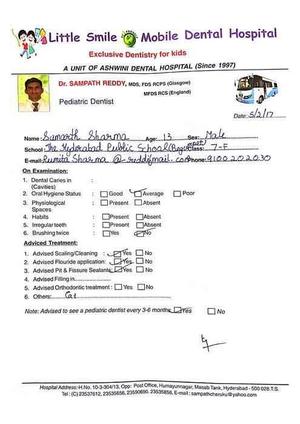 Little Smile Mobile Dental Hospital
Exclusive Dentistry for kids
A UNIT OF ASHWINI DENTAL HOSPITAL (Since 1997)
Dr. SAMPATH REDDY, MDS, FDS RCPS (Glasgow)
MFDS RCS (England)
Pediatric Dentist
Date: 5/2/17
Name: Samarth Sharma Age: 13 Sex: Male
School: The Hyderabad Public School (Begumpet) Class: 7-F
E-mail: Rumita Sharma @ rediffmail.com Phone: 9100202030
On Examination:
1. Dental Caries in :
(Cavities)
2. Oral Hygiene Status : Good Average Poor
3. Physiological : Present Absent
Spaces
4. Habits : Present Absent
5. Irregular teeth : Present Absent
6. Brushing twice : Yes No
Adviced Treatment:
1. Advised Scaling/Cleaning : Yes No
2. Advised Flouride application: Yes No
3. Advised Pit & Fissure Sealants Yes No
4. Advised Filling in
5. Advised Orthodontic treatment : Yes No
6. Others:
Note: Advised to see a pediatric dentist every 3-6 months Yes No
Hospital Address: H.No. 10-3-304/13, Opp: Post Office, Humayunnagar, Masab Tank, Hyderabad - 500 028. T.S.
Tel: (C) 23537612, 23530656, 23590695, 23535858, E-mail: sampathcheruku@yahoo.com